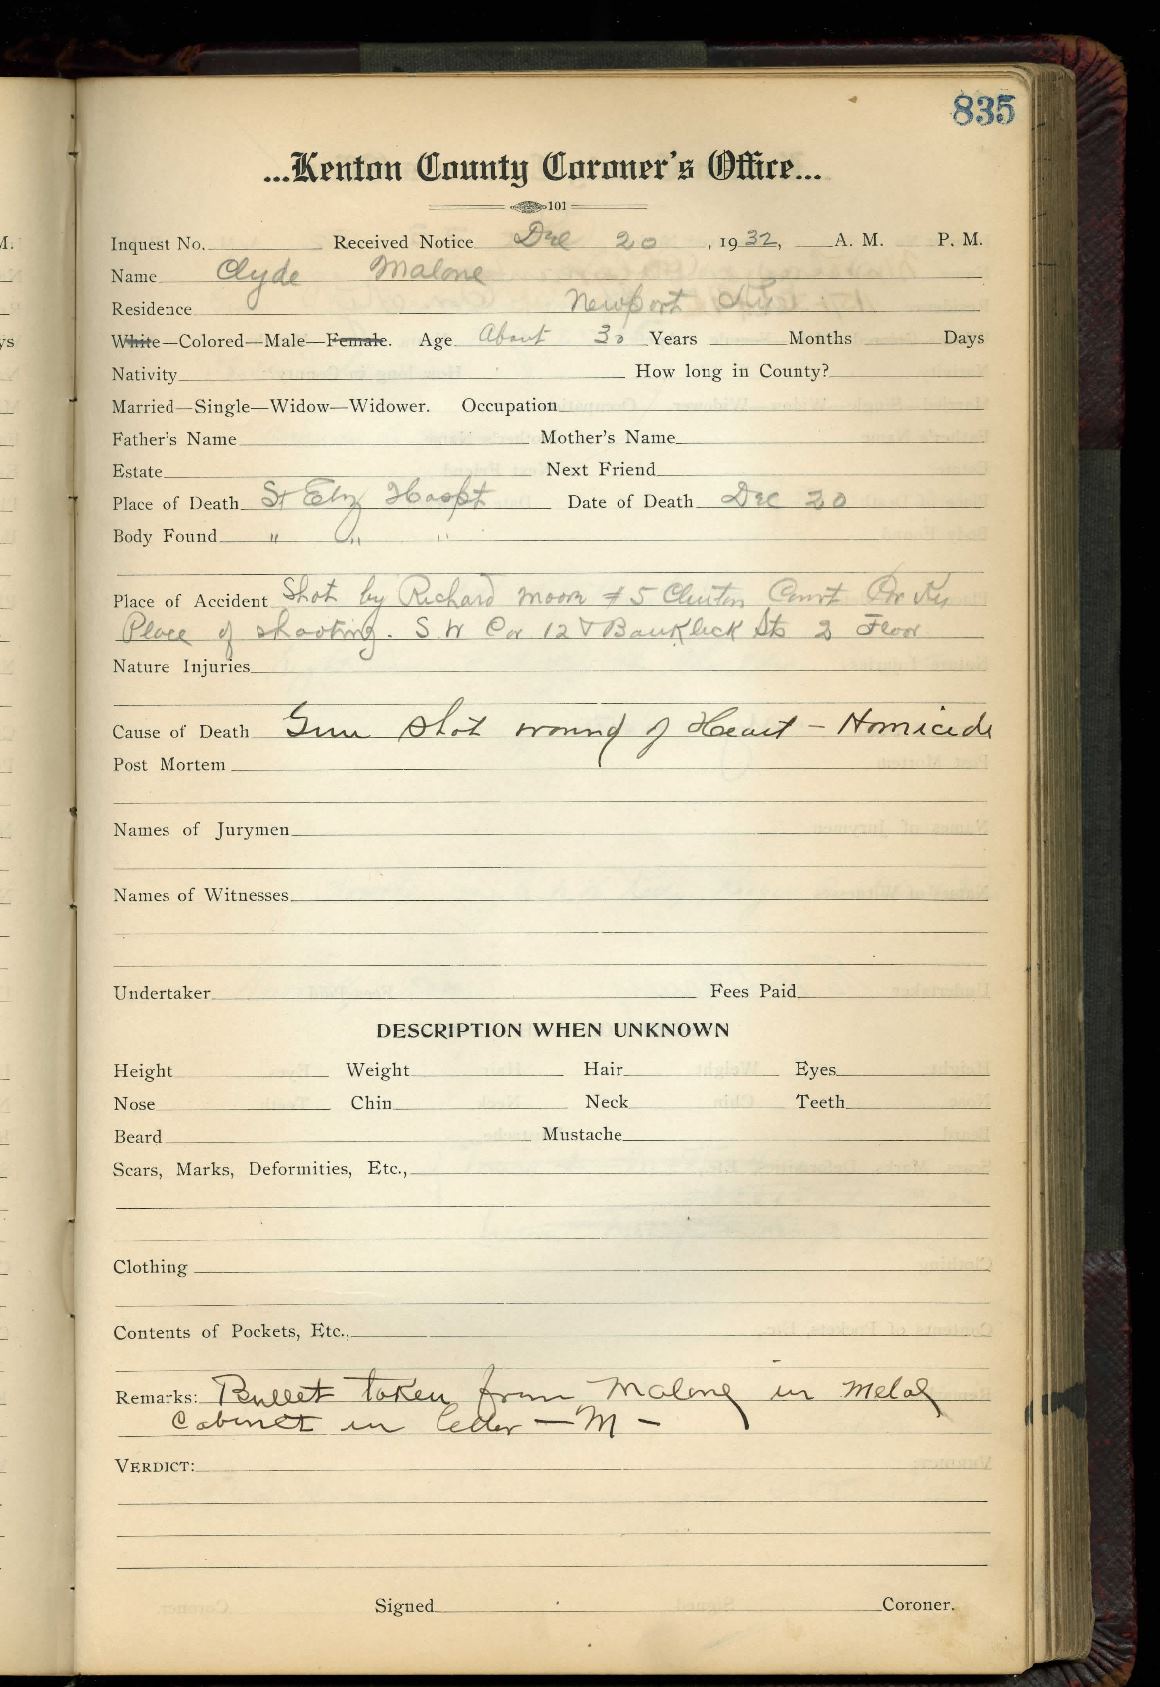 835
...Kenton County Coroner's Office...
101
Inquest No. Received Notice Dec 20, 1932, A. M. P. M.
Name Clyde Malone
Residence Newport Ky
White—Colored—Male—Female. Age About 30 Years Months Days
Nativity How long in County?
Married—Single—Widow—Widower. Occupation
Father's Name Mother's Name
Estate Next Friend
Place of Death St Elz Hospt Date of Death Dec 20
Body Found " " "
Place of Accident Shot by Richard Moore #5 Clinton Court Cov Ky
Place of shooting. S. W Cor 12 & Banklick Sts 2 Floor
Nature Injuries
Cause of Death Gun shot wound of Heart – Homicide
Post Mortem
Names of Jurymen
Names of Witnesses
Undertaker Fees Paid
DESCRIPTION WHEN UNKNOWN
Height Weight Hair Eyes
Nose Chin Neck Teeth
Beard Mustache
Scars, Marks, Deformities, Etc.,
Clothing
Contents of Pockets, Etc.,
Remarks: Bullet taken from Malone in Metal
Cabinet in letter — M —
VERDICT:
Signed Coroner.